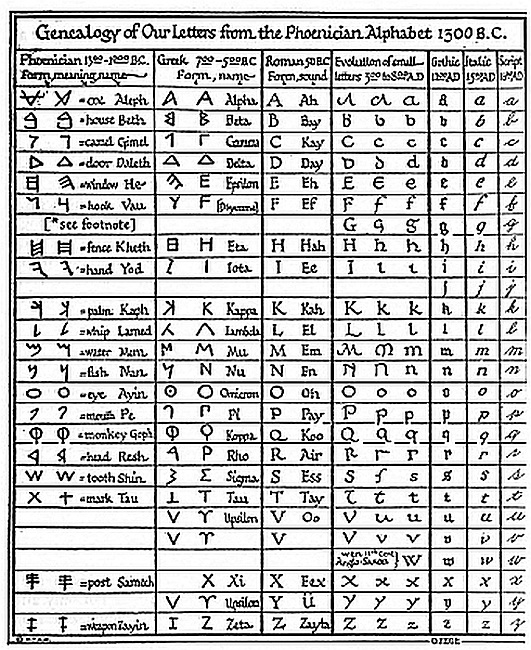 Genealogy of Our Letters from the Phoenician Alphabet 1300 B.C.
Phoenician 1300-1000 B.C. Greek 700-500 BC Roman 50 BC Evolution of small Gothic Italic Script
Form, meaning, name Form, name Form, sound letters 300 to 800 AD 1200 AD 1500 AD
=ox Aleph A A Alpha A Ah a a a
=house Beth B B Beta B Bay B b b b b b
=camel Gimel Γ C Kay C c c c c c
=door Daleth Δ Δ Delta D Day d d d d d
=window He E Epsilon E Eh E E e e e e
=hook Vau Y F [Digamma] F Ef F f f f f f
[*see footnote] G g g g g g
=fence Kheth H Eta H Hah H h h h h h
=hand Yod I Iota I Ee I i i i i
j j j
=palm Kaph K K Kappa K Kah K k k k k k
=whip Lamed Lambda L El L l l l l l
=water Mem M M Mu M Em m m m m m
=fish Nun N Nu N En N n n n n n
=eye Ayin O Omicron O Oh O o o o o o
=mouth Pe Γ Pi P Pay P p p p p p
=monkey Qoph Koppa Q Koo Q q q q q
=head Resh P Rho R Air R r r r r r
=tooth Shin Σ Sigma S Ess S s s s s
=mark Tau T Tau T Tay t t t t t
V Υ Upsilon V Oo V u u u u u
V Υ V V v v v v v
Anglo-Saxon } W w w w
=post Samech X Xi X Eex X x x x x x
V Υ Upsilon Y Ü Y y y y y y
=weapon Zayin I Z Zeta Z Zayta Z Z z z z z